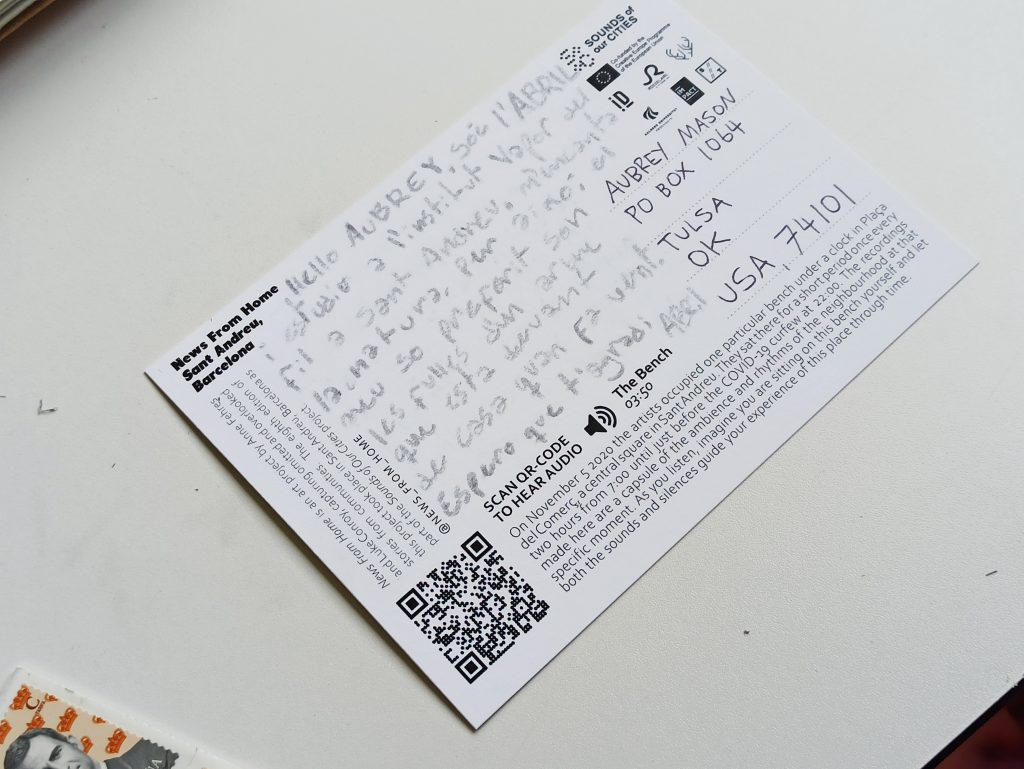 News From Home
Sant Andreu,
Barcelona
Hello AUBREY, sóc l'ABRIL
i estudio a l'institut Vapor del
Fil a Sant Andreu, m'encanta
la natura, per això el
meu so preferit són
les fulles d'un arbre
que està devant
de casa quan fa vent.
Espero que t'agradi ABRIL
SOUNDS of
our CITIES
Co-funded by the
Creative Europe Programme
of the European Union
iD
IM
PACT
AUBREY MASON
PO BOX 1064
TULSA
OK
USA, 74101
News From Home is an art project by Anne Fehres
and Luke Conroy, capturing omitted and overlooked
stories from communities. The eighth edition of
this project took place in Sant Andreu, Barcelona as
part of the Sounds of Our Cities project
@NEWS_FROM_HOME
SCAN QR-CODE
TO HEAR AUDIO
The Bench
03:50
On November 5 2020 the artists occupied one particular bench under a clock in Plaça
del Comerç, a central square in Sant Andreu. They sat there for a short period once every
two hours from 7:00 until just before the COVID-19 curfew at 22:00. The recordings
made here are a capsule of the ambience and rhythms of the neighbourhood at that
specific moment. As you listen, imagine you are sitting on this bench yourself and let
both the sounds and silences guide your experience of this place through time.